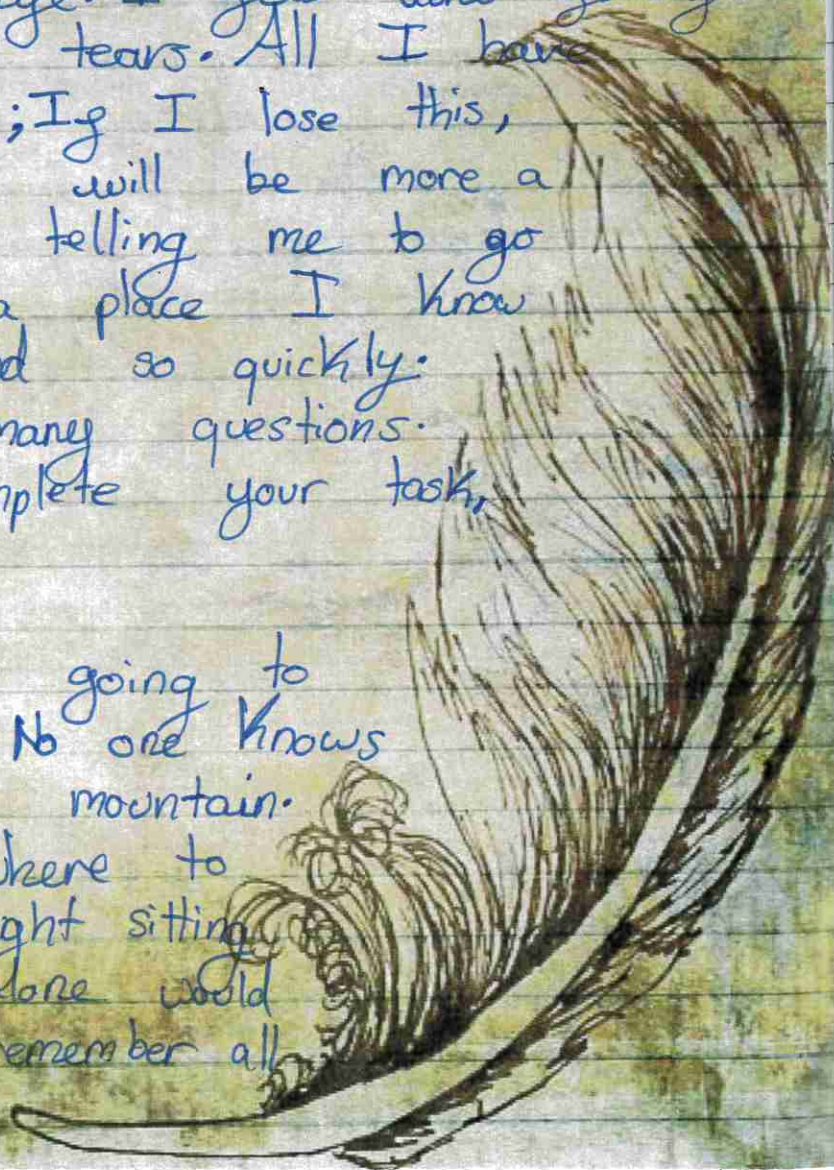 tears. All I have
; If I lose this,
will be more a
telling me to go
a place I know
d so quickly.
many questions.
mplete your task,
going to
No one knows
mountain.
where to
ght sitting
lone would
emember all